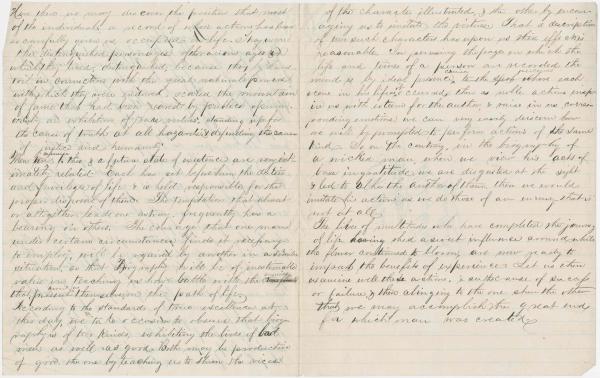 Here then we may discover the position that most
of the individuals, a record of whose actions has been
so carefully given us occupied in life. They were
the distinguished personages of the various ages in
which they lived, distinguished, because they
in connection with the great natural powers
with which they were endowed, scaled the mountain
of fame that had been
as exhibitors of
the cause of truth at all hazards & defending the cause
of justice and humanity.
to this & a future state of existence are
related. Each has set before him the duties
and privileges of life & is held responsible for the
proper disposal of them. The temptation that thwart
or altogether leads one astray, frequently has a
bearing on others. The courage that one man
under certain circumstances finds it necessary
to employ, will be required by another in a similar
situation, so that Biography will be of inestimable
value in teaching us how to battle with the
that present themselves in the path of life.
According to the standards of true excellence at
this day, we to observe that biog-
raphy is of two kinds, exhibiting the lives of bad
men as well as good. Both may be productive
of good, the one by teaching us to shun the vices
of the character illustrated, & the other by encour-
aging us to imitate the virtues. That a description
of two such characters has upon us this effect is
reasonable. In perusing the page on which the
life and times of a person are recorded the
mind is by ideal carried to the spot where each
scene in his life occurred, thus a noble action inspires
in us with esteem for the author & moves in us corres-
ponding emotions. we can very easily discern how
we will be prompted to perform actions of the same
kind. So on the contrary, in the biography of
a wicked man, when we view his acts of
base ingratitude we are disgusted at the sight
& led to the author of them, then we would
imitate his actions as we do those of an enemy, that is
not at all.
The lives of multitudes who have completed the journey
of life having shed a sweet influence around while
the flower continued to bloom, are now ready to
impart the benefits of experience. Let us then
examine well those actions, & causes of success
or failure, & then clinging to the one shun the other
that we may accomplish the great end
for which man was created.